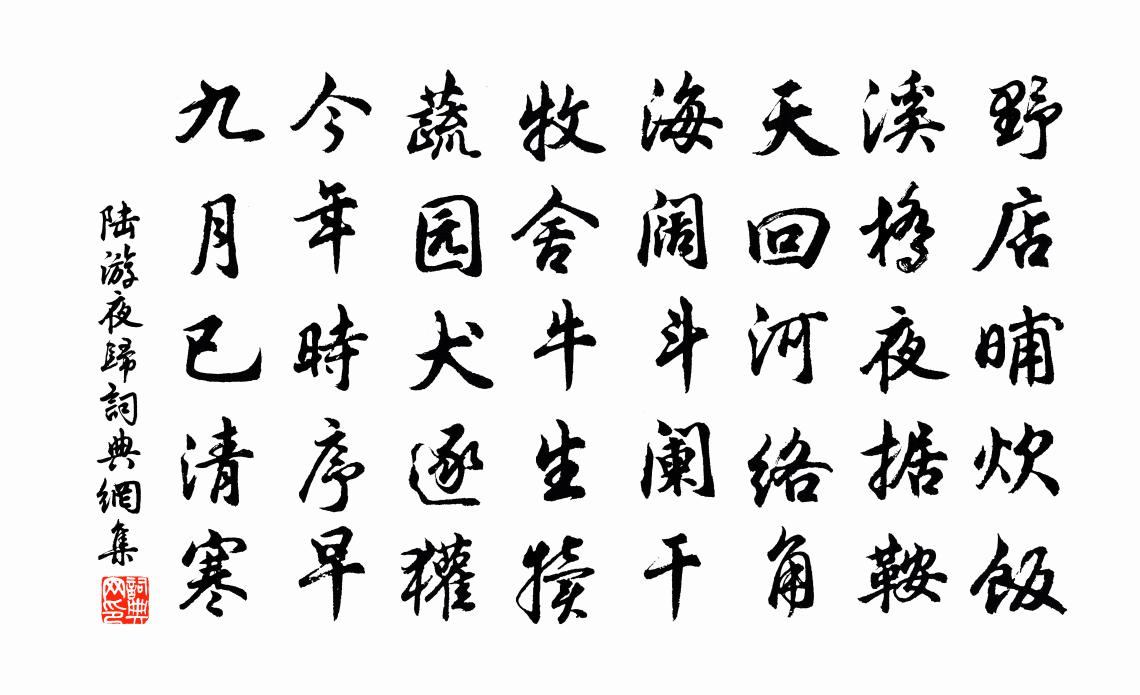 野店晡炊飯
溪橋夜据鞍
天回河絡角
海阔斗阑干
牧舍牛生犊
蔬园犬逐獾
今年時序早
九月已清寒
陆游夜歸詞典網集
詞典